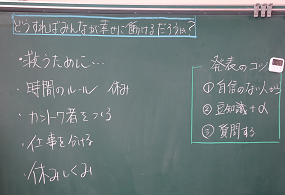 どうすればみんなが幸せに働けるだろうか?
・救うために…
・時間のルール 休み
・カントク者をつくる
・仕事を分ける
・休みしくみ
発表のコツ
① 自信のない人から
② 豆知識+α
③ 質問する